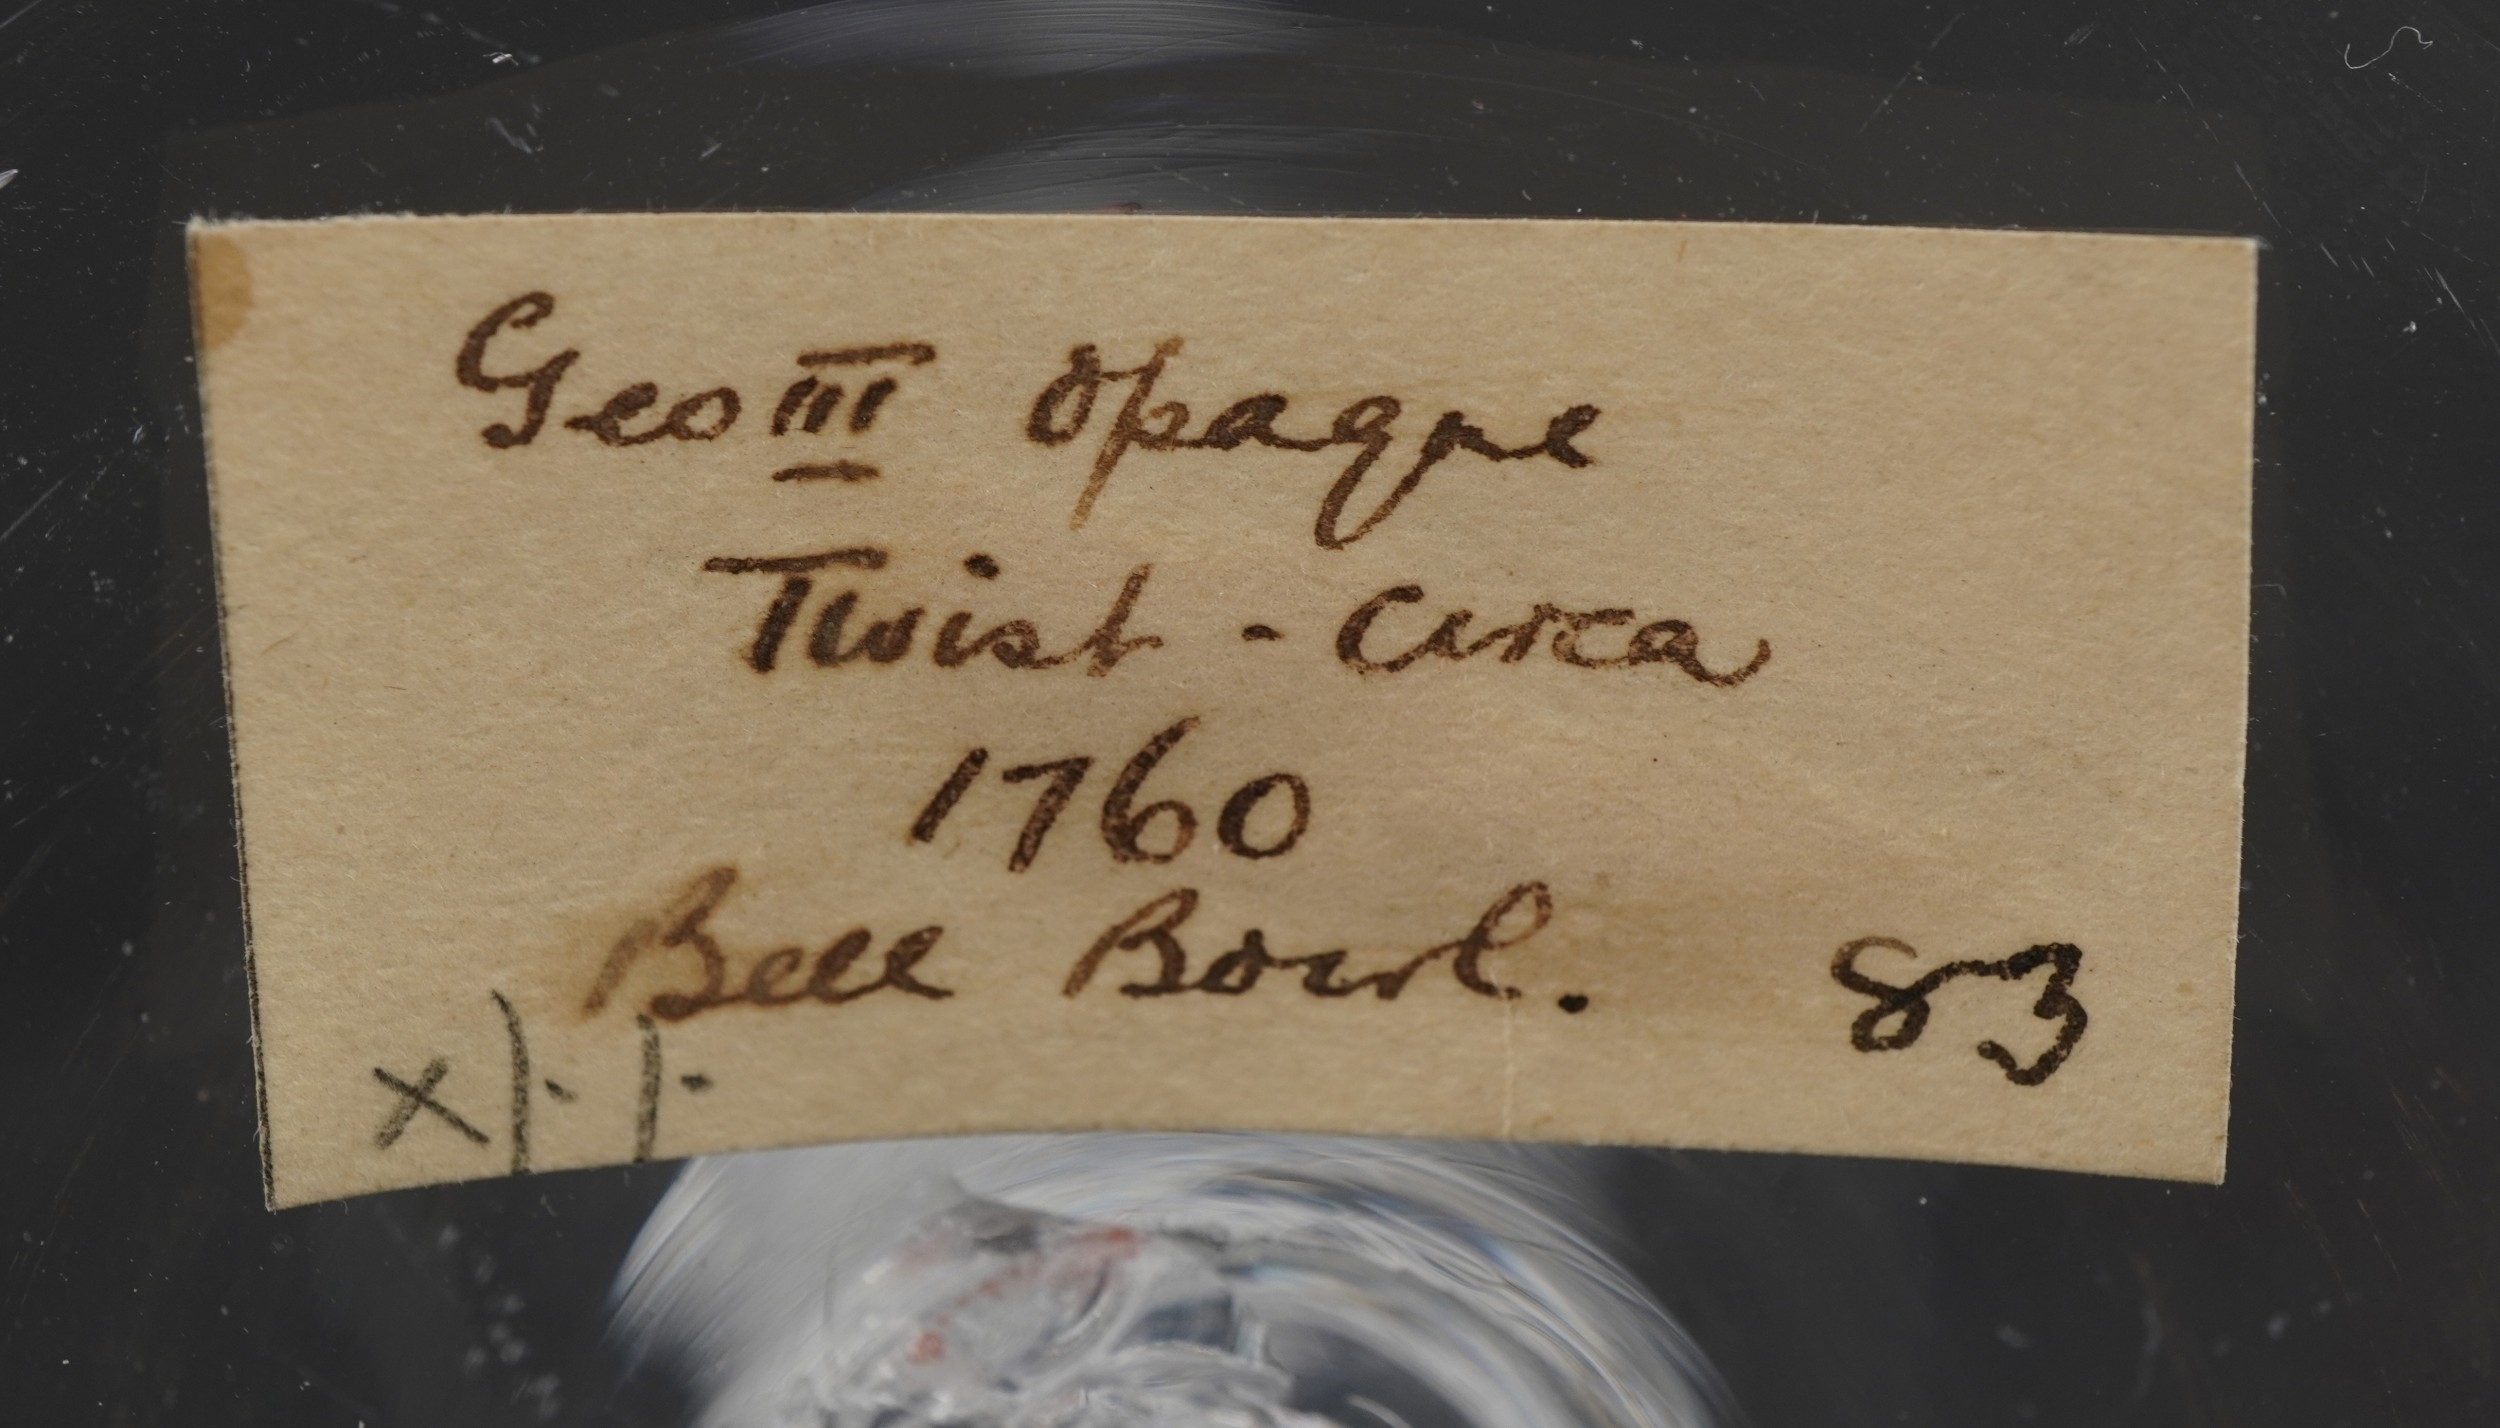 Geo III Opaque
Twist - Circa
1760
Bell Bowl. 83